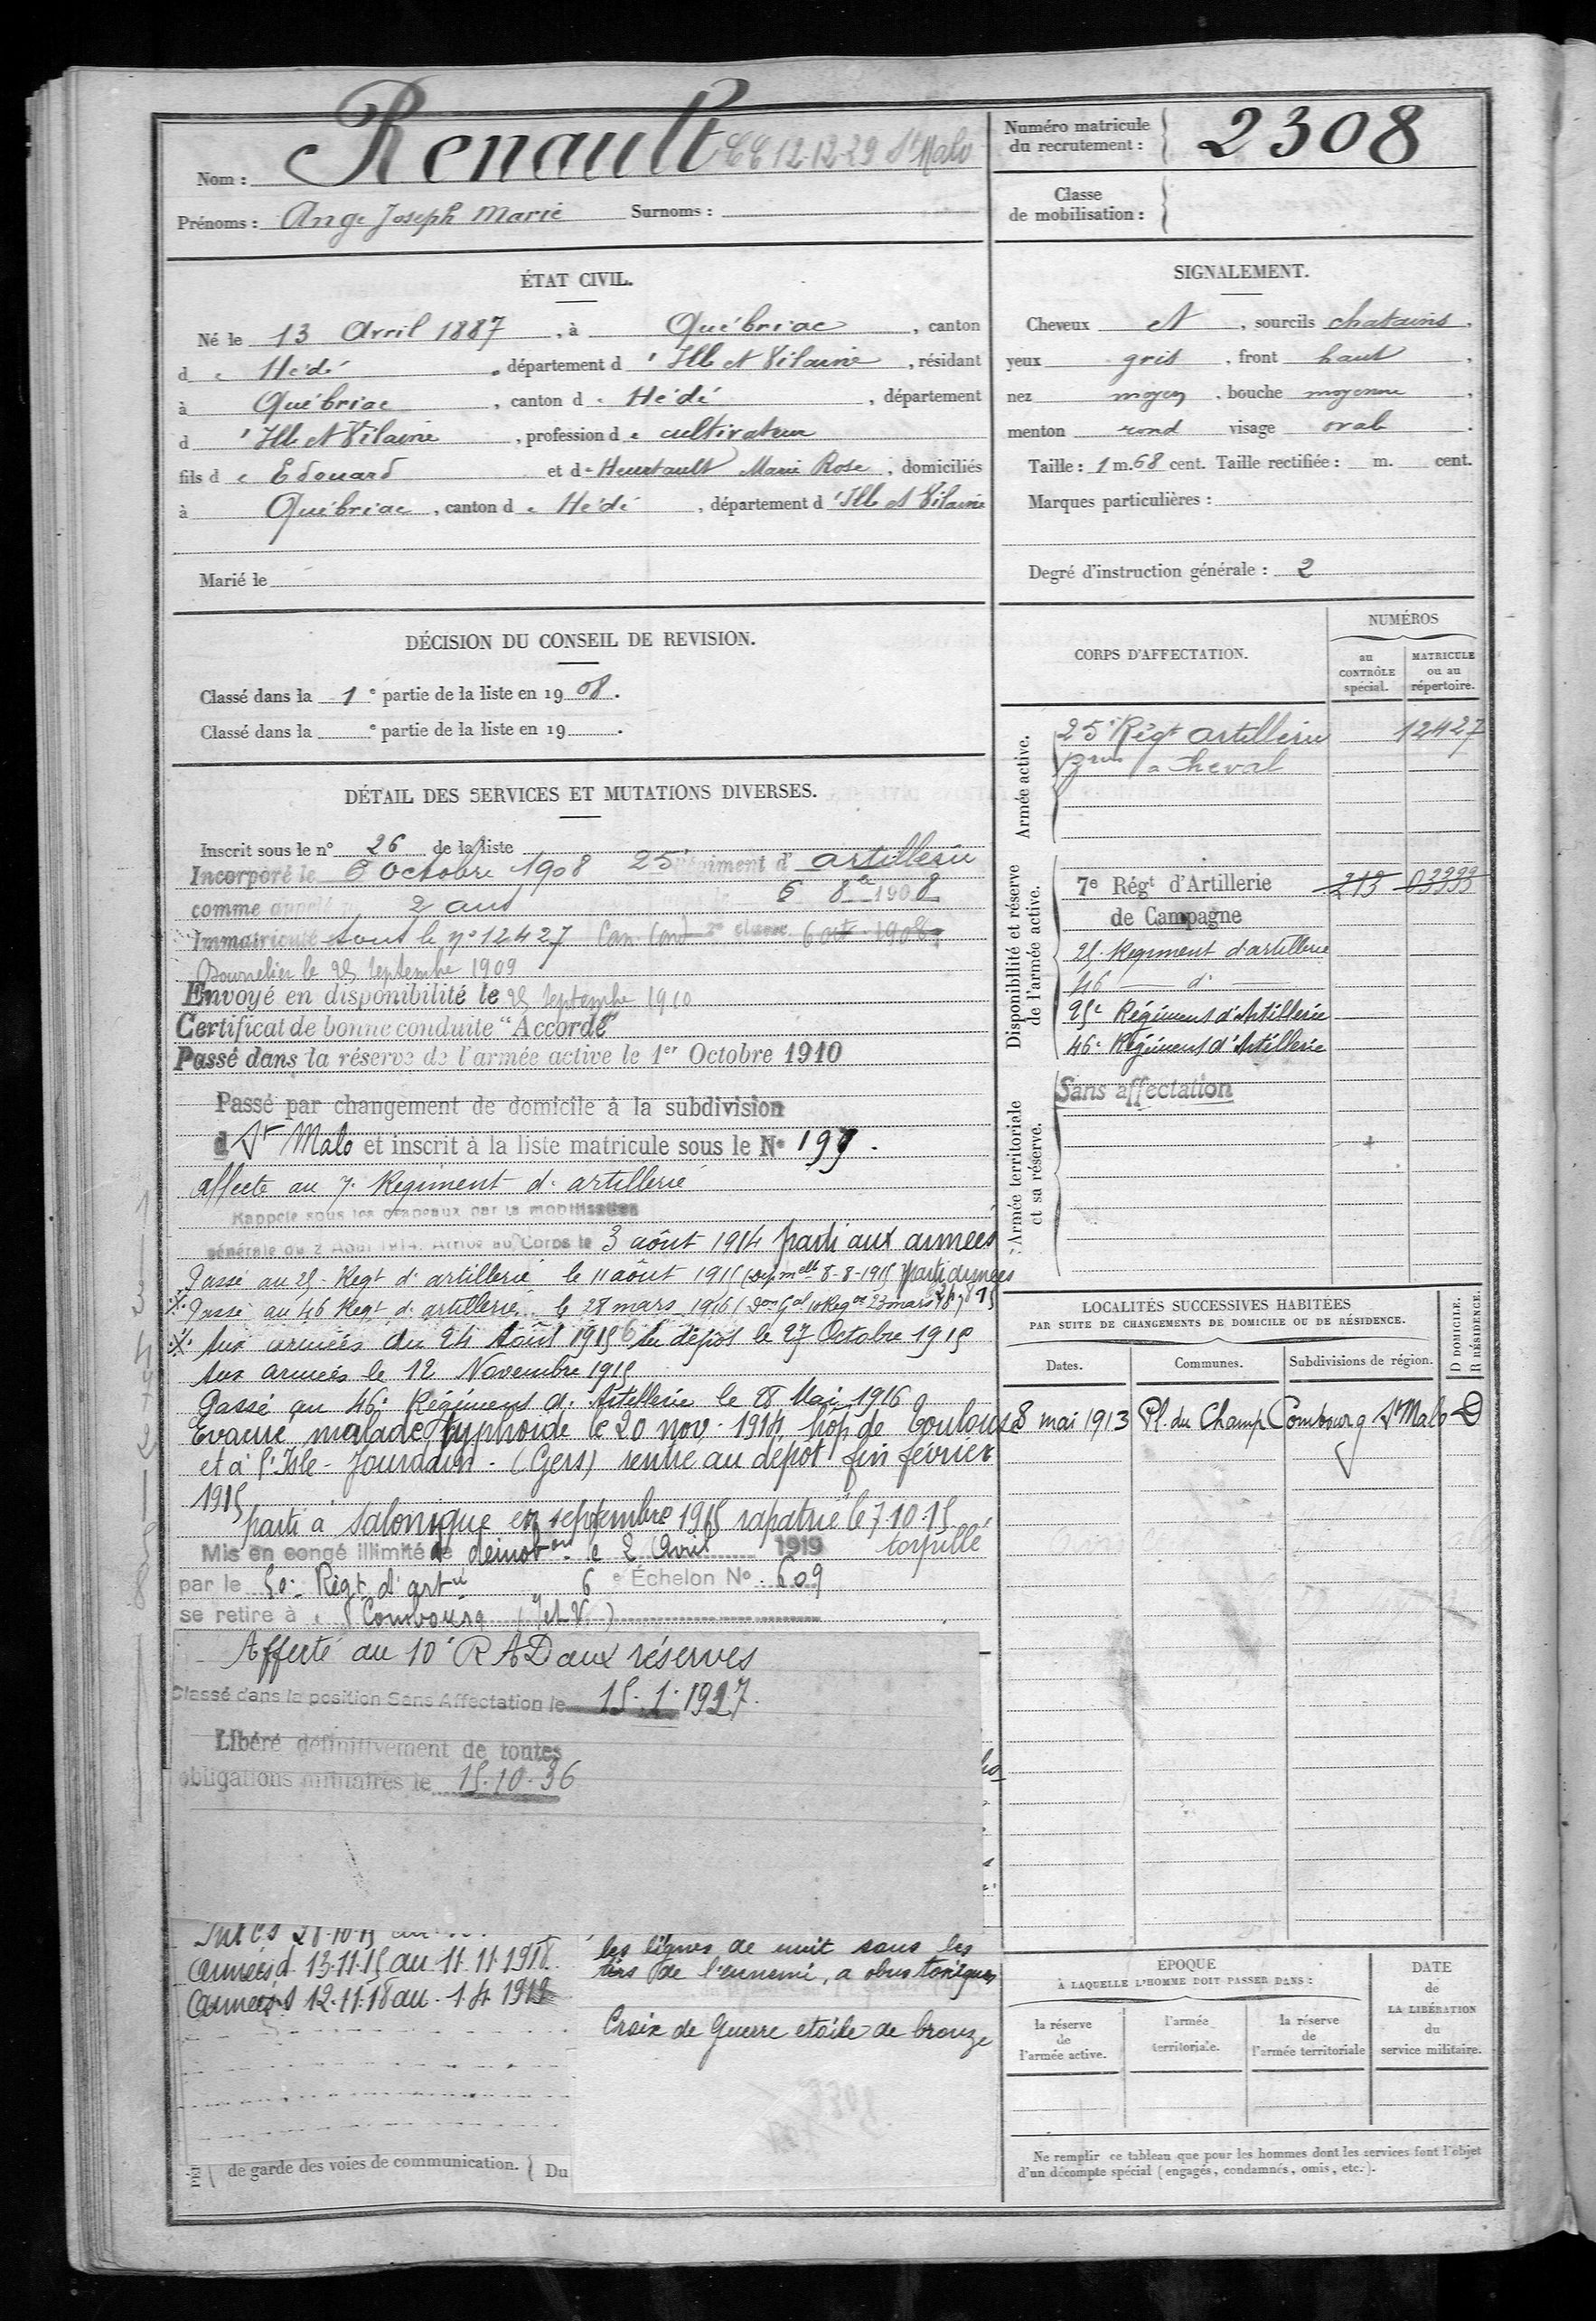 Nom : Renault CC 12-12-29 St Malo
Prénoms : Ange Joseph Marie Surnoms :
Numéro matricule du recrutement : 2308
Classe de mobilisation :
ÉTAT CIVIL.
Né le 13 Avril 1887, à Québriac, canton
de Hédé, département d'Ille et Vilaine, résidant
à Québriac, canton de Hédé, département
d'Ille et Vilaine, profession de cultivateur
fils de Edouard et de Heurtault Marie Rose, domiciliés
à Québriac, canton de Hédé, département d'Ille et Vilaine
Marié le
SIGNALEMENT.
Cheveux et, sourcils chatains,
yeux gris, front haut,
nez moyen, bouche moyenne,
menton rond visage ovale.
Taille : 1 m. 68 cent. Taille rectifiée : m. cent.
Marques particulières :
Degré d'instruction générale : 2
DÉCISION DU CONSEIL DE REVISION.
Classé dans la 1e partie de la liste en 1908.
Classé dans la e partie de la liste en 19 .
DÉTAIL DES SERVICES ET MUTATIONS DIVERSES.
Inscrit sous le n° 26 de la liste
Incorporé le 6 Octobre 1908 25e régiment d'artillerie
comme appelé 2 ans le 6 8bre 1908
Immatriculé sous le n° 12427 Can. Cond 2e classe 6 oct 1908
Bourrelier le 25 Septembre 1909
Envoyé en disponibilité le 25 Septembre 1910
Certificat de bonne conduite "Accordé"
Passé dans la réserve de l'armée active le 1er Octobre 1910
Passé par changement de domicile à la subdivision
d St Malo et inscrit à la liste matricule sous le N°
affecté au 7e Régiment d'artillerie
Rappelé sous les drapeaux par la mobilisation
générale du 2 Août 1914. Arrivé au Corps le 3 août 1914 parti aux armées
Passé au 25e Regt d'artillerie le 11 août 1915 8-8-1915
Passé au 46 Regt d'artillerie le 28 mars 1916 23 mars
Aux armées du 24 Août 1915 Au dépôt le 27 Octobre 1915
Aux armées le 12 Novembre 1915
Passé au 46e Régiment d'Artillerie le 8 Mai 1916
Evacué malade typhoïde le 20 nov. 1914 hôp de Toulouse
et à l'Isle-Jourdain - (Gers) rentré au dépôt fin février
1915
parti à Salonique en septembre 1915 rapatrié le 7.10.15
torpillé
Mis en congé illimité de démobon le 2 Avril 1919
par le 50e Regt d'artie 6e Échelon N° 609
se retire à Combourg (I et V)
Affecté au 10e RAD aux réserves
Classé dans la position Sans Affectation le 15.1.1927.
Libéré définitivement de toutes
obligations militaires le 15.10.36
28-10-15
armées d 13.11.15 au 11.11.1918
armées 12.11.18 au 1.4.1919
les lignes de nuit sous les
tirs de l'ennemi, a obus toxiques
Croix de Guerre etoile de bronze
de garde des voies de communication. Du
CORPS D'AFFECTATION.
NUMÉROS
au CONTRÔLE spécial.
MATRICULE ou au répertoire.
Armée active.
25e Régt artillerie 12427
à Cheval
Disponibilité et réserve de l'armée active.
7e Régt d'Artillerie 213 03999
de Campagne
25. Regiment d'artillerie
46 — d° —
25e Régiment d'Artillerie
46e Régiment d'Artillerie
Armée territoriale et sa réserve.
Sans affectation
LOCALITÉS SUCCESSIVES HABITÉES
PAR SUITE DE CHANGEMENTS DE DOMICILE OU DE RÉSIDENCE.
Dates. Communes. Subdivisions de région. D DOMICILE. R RÉSIDENCE.
8 mai 1913 Pl. du Champ Combourg St Malo D
ÉPOQUE
À LAQUELLE L'HOMME DOIT PASSER DANS :
la réserve de l'armée active.
l'armée territoriale.
la réserve de l'armée territoriale
DATE de LA LIBÉRATION du service militaire.
Ne remplir ce tableau que pour les hommes dont les services font l'objet
d'un décompte spécial (engagés, condamnés, omis, etc.).